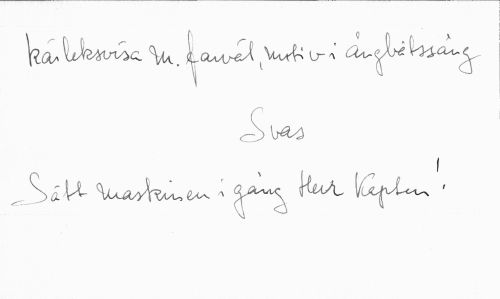 Kärleksvisa m. farväl, motiv i ångbåtssång
Svas
Sätt maskinen i gång Herr Kapten!